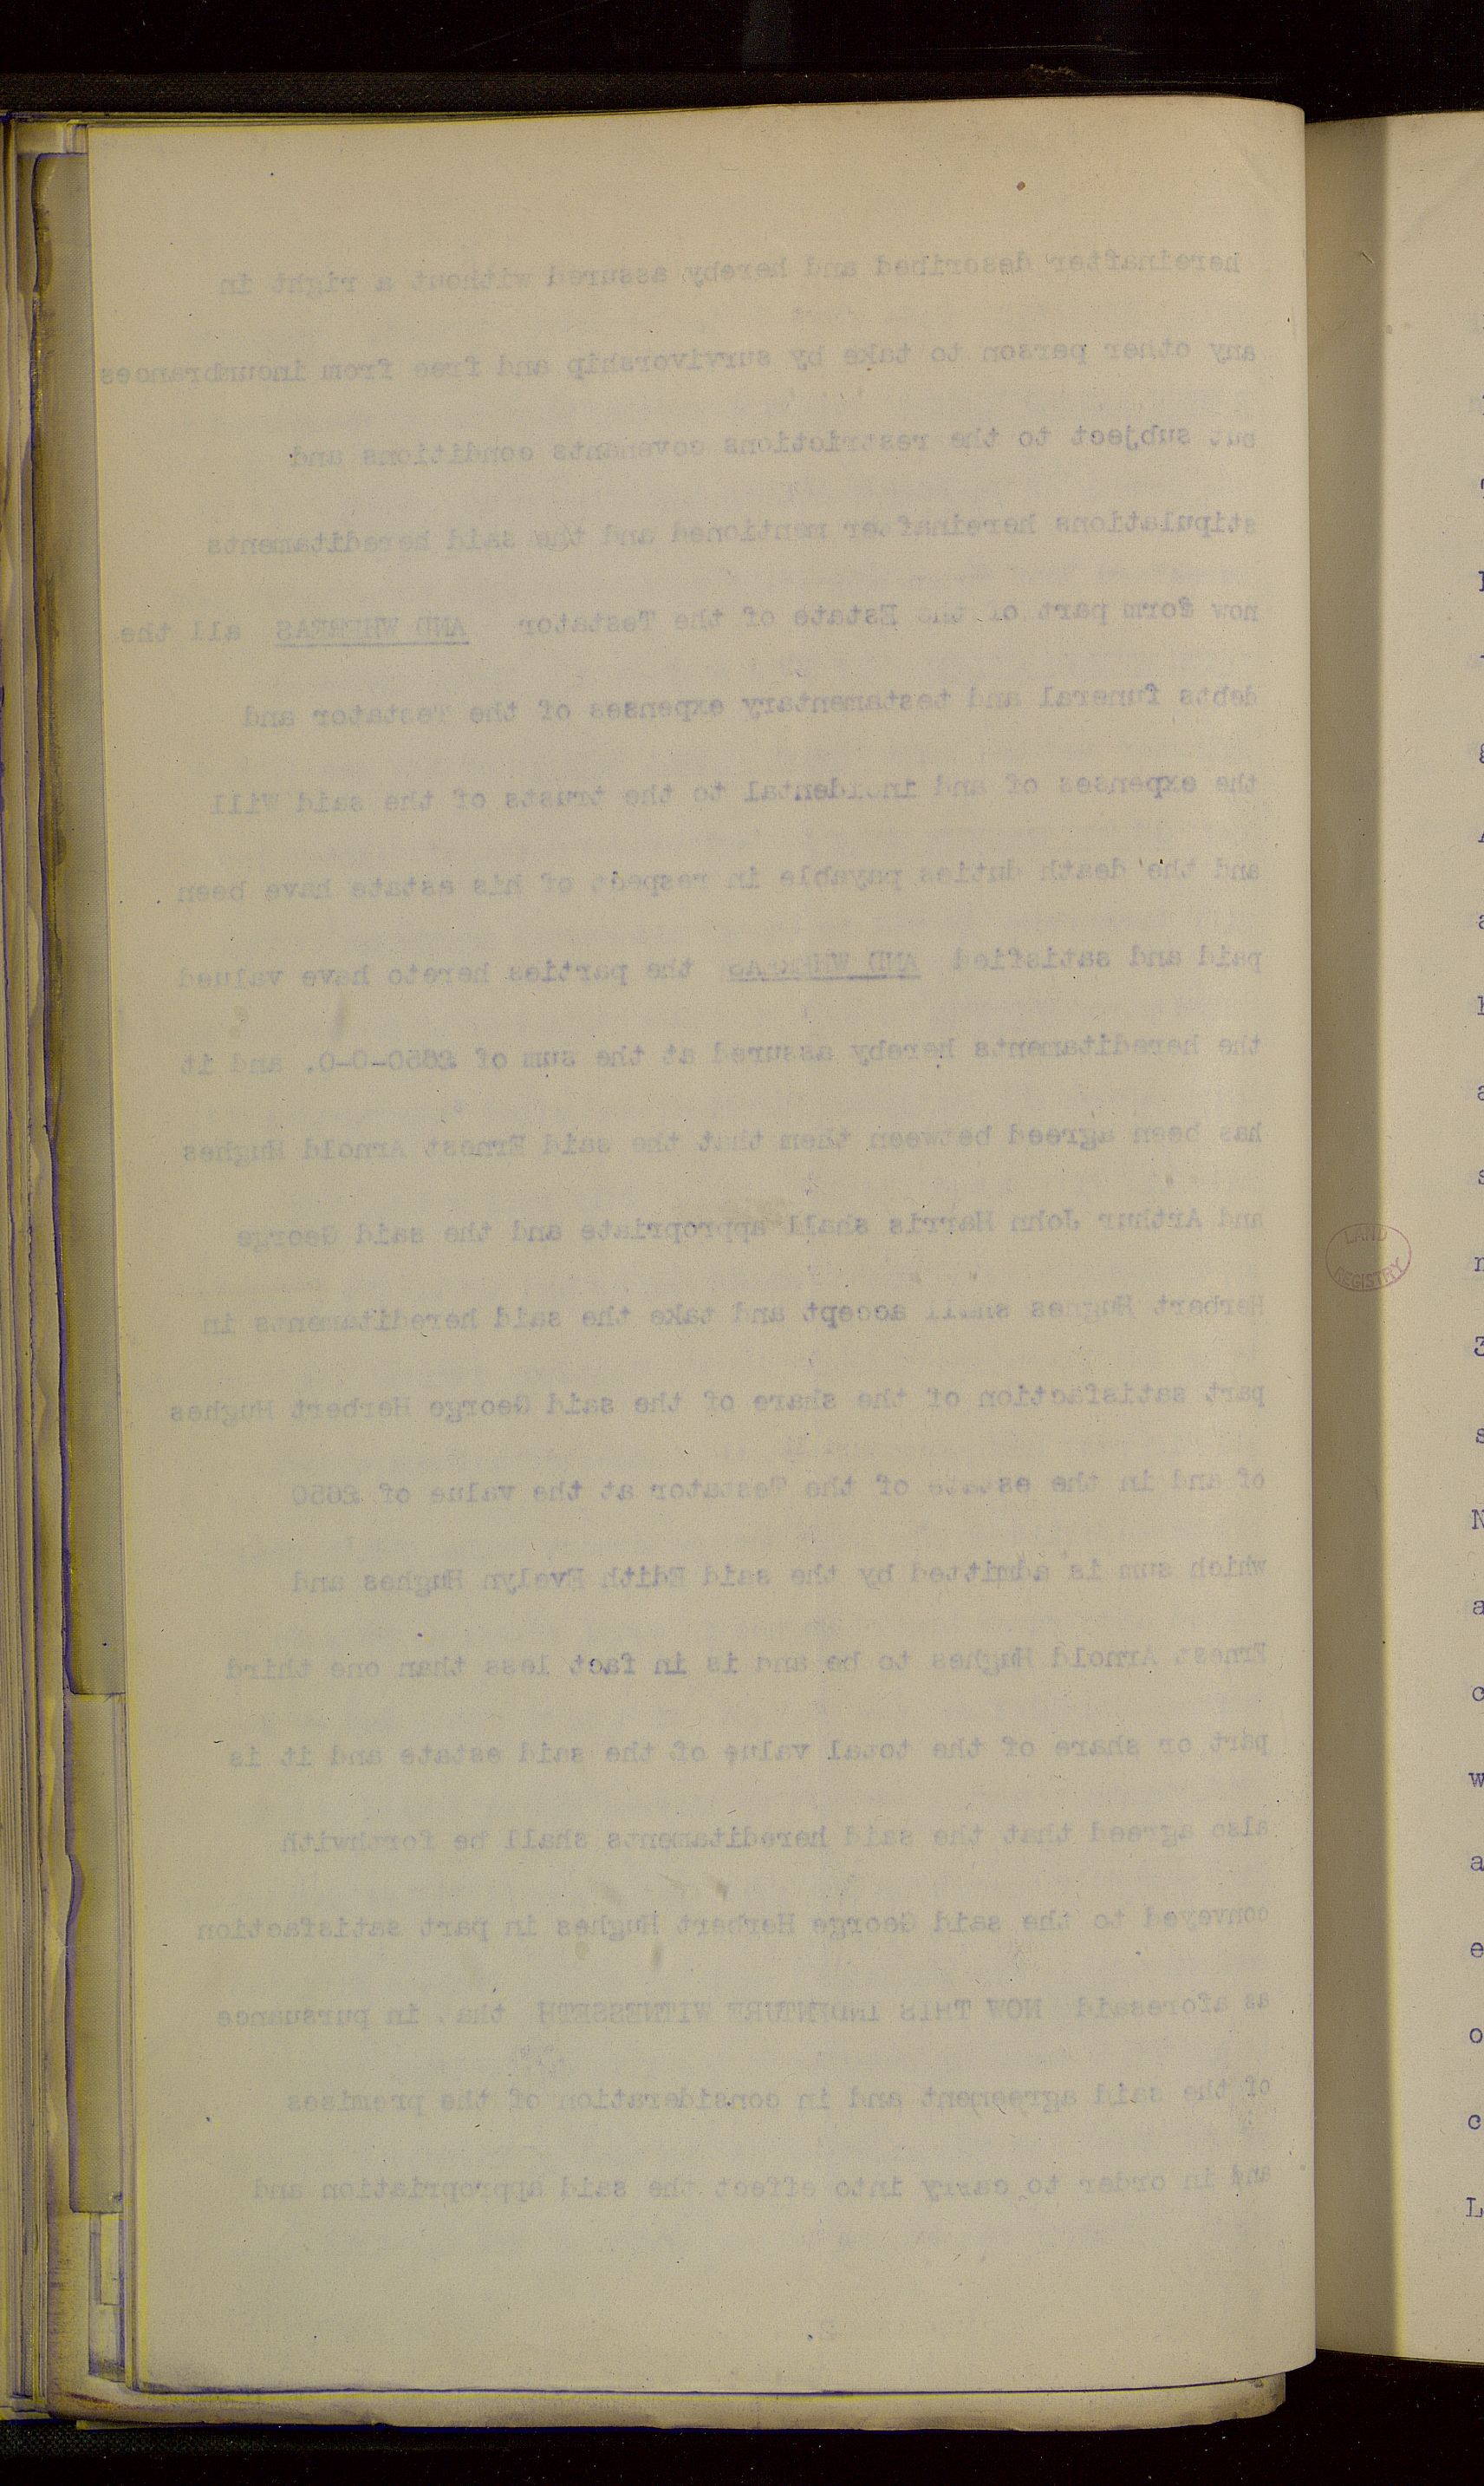 hereinafter described and hereby assured without a right in
any other person to take by survivorship and free from incumbrances
but subject to the restrictions covenants conditions and
stipulations hereinafter mentioned and the said hereditaments
now form part of the Estate of the Testator AND WHEREAS all the
debts funeral and testamentary expenses of the Testator and
the expenses of and incidental to the trusts of the said Will
and the death duties payable in respect of his estate have been
paid and satisfied AND WHEREAS the parties hereto have valued
the hereditaments hereby assured at the sum of £650-0-0. and it
has been agreed between them that the said Ernest Arnold Hughes
and Arthur John Harris shall appropriate and the said George
Herbert Hughes shall accept and take the said hereditaments in
part satisfaction of the share of the said George Herbert Hughes
of and in the estate of the Testator at the value of £650
which sum is admitted by the said Edith Evelyn Hughes and
Ernest Arnold Hughes to be and is in fact less than one third
part or share of the total value of the said estate and it is
also agreed that the said hereditaments shall be forthwith
conveyed to the said George Herbert Hughes in part satisfaction
as aforesaid NOW THIS INDENTURE WITNESSETH that in pursuance
of the said agreement and in consideration of the premises
and in order to carry into effect the said appropriation and
LAND
REGISTRY